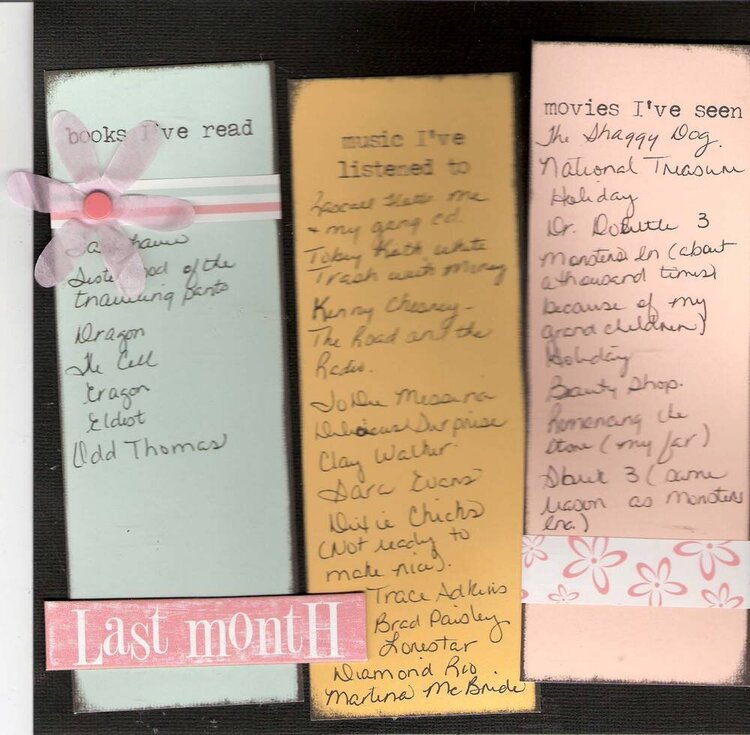 books I've read
Sisterhood of the
traveling pants
Dragon
The Cell
Eragon
Eldest
Odd Thomas
Last montH
music I've
listened to
Rascal Flatts me
+ my gang cd.
Toby Keith white
Trash with money
Kenny Chesney -
The Road and the
Radio.
JoDee Messina
Delicious Surprise
Clay Walker.
Sara Evans
Dixie Chicks
(Not ready to
make nice).
Trace Adkins
Brad Paisley
Lonestar
Diamond Rio
Martina McBride
movies I've seen
The Shaggy Dog.
National Treasure
Holiday
Dr. Dolittle 3
Monsters Inc (about
a thousand times)
because of my
grand children)
Holiday
Beauty Shop.
Romancing the
Stone (my fav)
3 (same
reason as Monsters
Inc.)